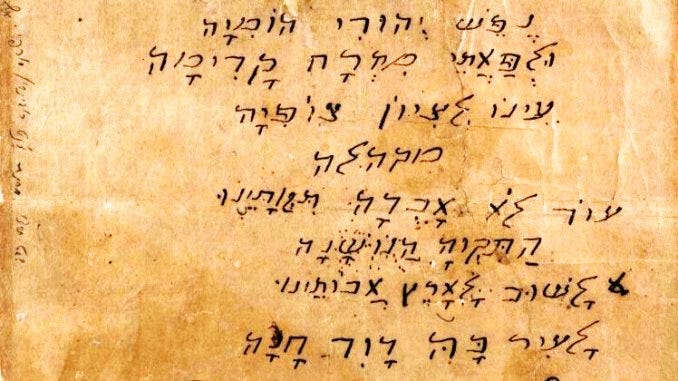 נֶפֶשׁ יְהוּדִי הוֹמִיָה
וּלְפַּאֲתֵי מִזְרָח קָדִימָה
עֵינוֹ לְצִיוֹן צוֹפִיָּה
מקהלה
עוֹד לֹא אָבְדָה תִּקְוָתֵינוּ
הַתִּקְוָה הַנוֹשָׁנָה
לָשׁוּב לָאָרֶץ אֲבוֹתֵינוּ
לָעִיר בָּהּ דָוִד חָנָה